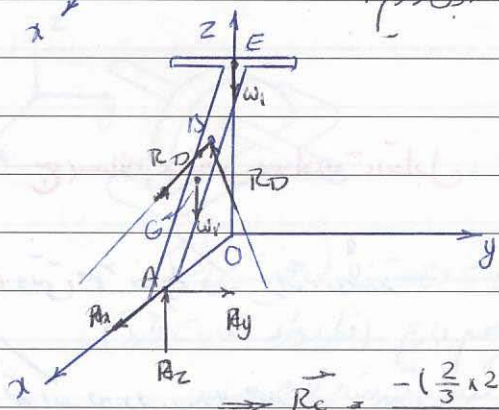 x
Z
E
W₁
B
R_D
R_D
G
W₂
O
y
A
A_x
A_y
A_z
x
⟹ R_c⃗ = -(2/3 x 2